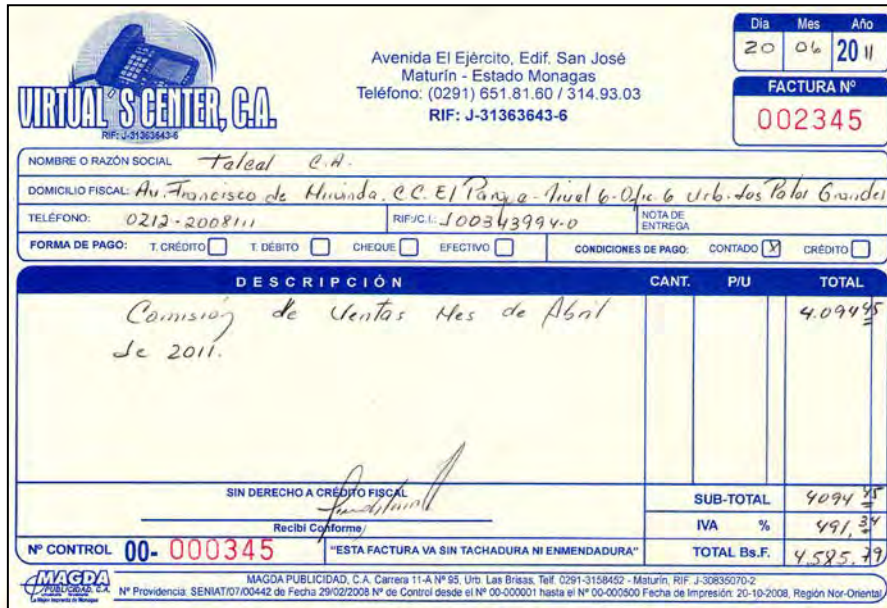 VIRTUAL'S CENTER, C.A.
RIF: J-31363643-6
Avenida El Ejército, Edif. San José
Maturín - Estado Monagas
Teléfono: (0291) 651.81.60 / 314.93.03
RIF: J-31363643-6
Dia Mes Año
20 06 2011
FACTURA Nº
002345
NOMBRE O RAZÓN SOCIAL Talcal C.A.
DOMICILIO FISCAL: Av. Francisco de Miranda. C.C. El Parque - Nivel 6 - Ofic. 6 Urb. Los Palos Grandes
TELÉFONO: 0212-2008111 RIF:/C.I.: J00343994-0 NOTA DE ENTREGA
FORMA DE PAGO: T. CRÉDITO T. DÉBITO CHEQUE EFECTIVO CONDICIONES DE PAGO: CONTADO X CRÉDITO
DESCRIPCIÓN CANT. P/U TOTAL
Comisión de Ventas Mes de Abril 4.094 45
de 2011.
SIN DERECHO A CRÉDITO FISCAL
SUB-TOTAL 4094 45
Recibí Conforme
IVA % 491,34
Nº CONTROL 00- 000345 "ESTA FACTURA VA SIN TACHADURA NI ENMENDADURA" TOTAL Bs.F. 4.585.79
MAGDA PUBLICIDAD, C.A.
La Mejor Imprenta de Monagas
MAGDA PUBLICIDAD, C.A. Carrera 11-A Nº 95, Urb. Las Brisas, Telf. 0291-3158452 - Maturín, RIF. J-30835070-2
Nº Providencia: SENIAT/07/00442 de Fecha 29/02/2008 Nº de Control desde el Nº 00-000001 hasta el Nº 00-000500 Fecha de Impresión: 20-10-2008, Región Nor-Oriental